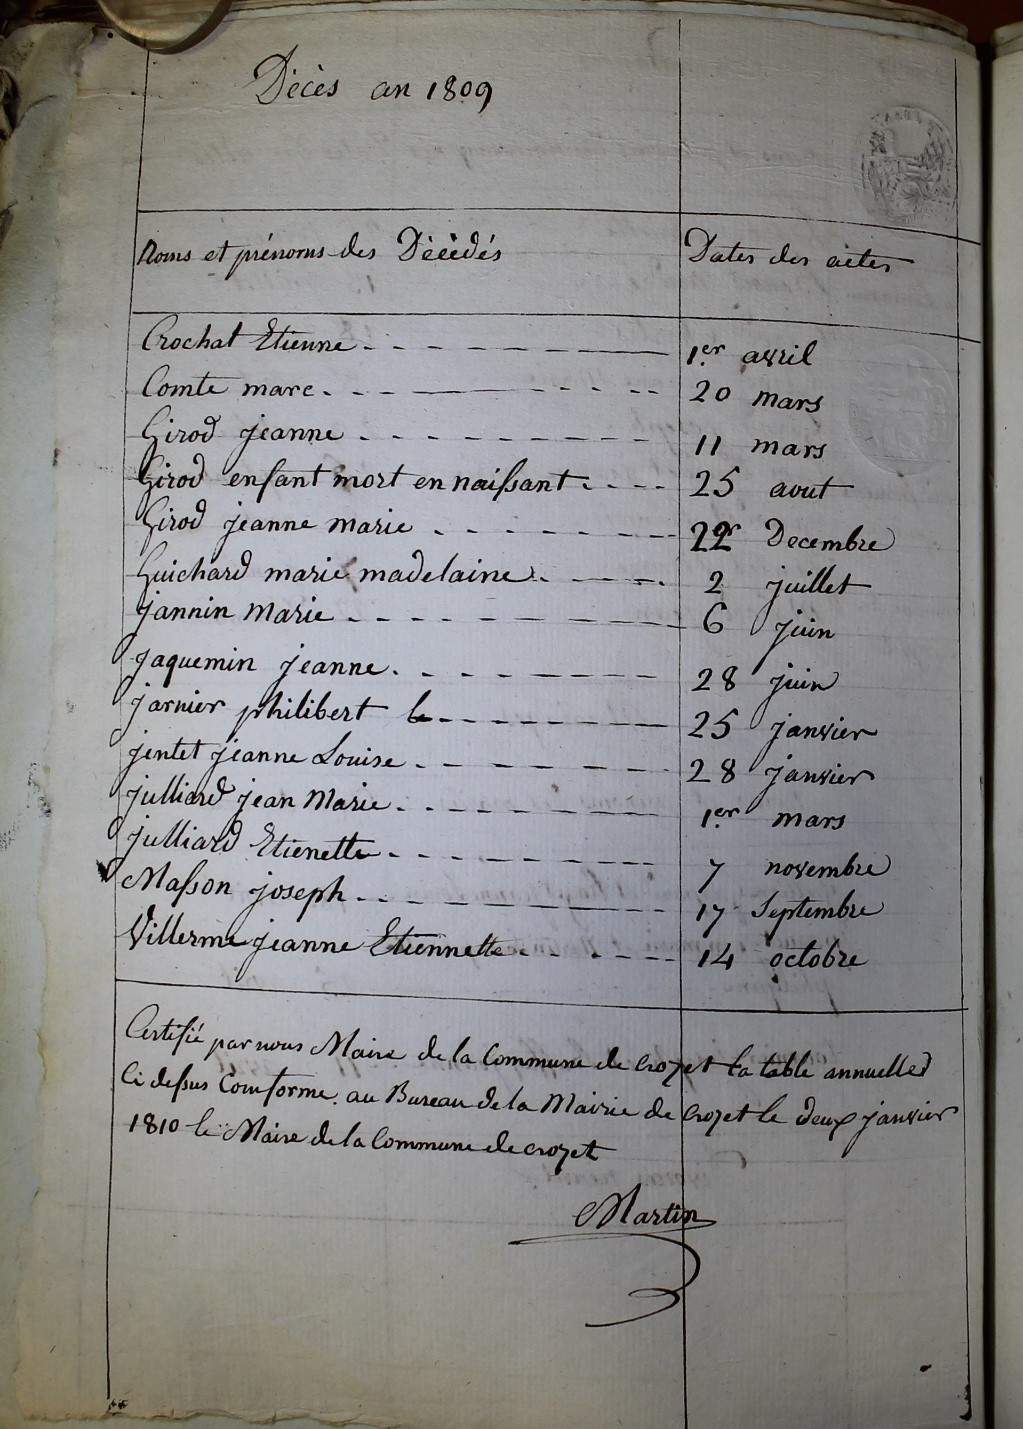 Décès an 1809
Noms et prénoms des Décédés Dates des actes
Crochat Etienne 1er avril
Comte marc 20 mars
Girod jeanne 11 mars
Girod enfant mort en naissant 25 aout
Girod jeanne marie 22 Decembre
Guichard marie madelaine 2 juillet
jannin marie 6 juin
jaquemin jeanne 28 juin
jarnier philibert 25 janvier
jentet jeanne Louise 28 janvier
julliard jean Marie 1er mars
julliard Etienette 7 novembre
Masson joseph 17 Septembre
Villerme jeanne Etiennette 14 octobre
Certifié par nous Maire de la Commune de crozet la table annuelle
Ci dessus Comforme. au Bureau de la Mairie de Crozet le deux janvier
1810 le Maire de la Commune de crozet
Martin